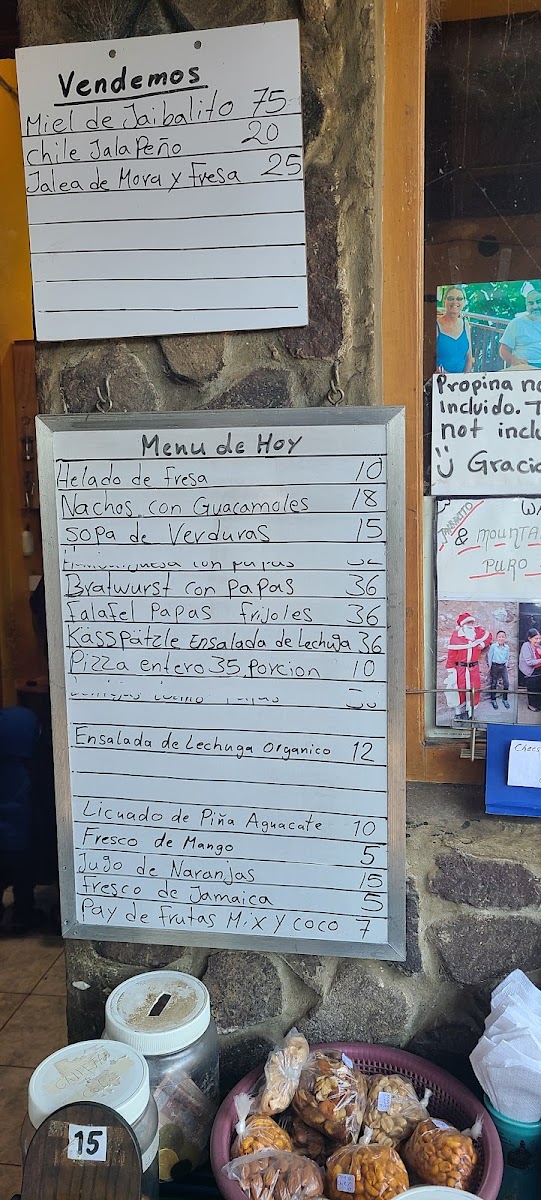 Vendemos
Miel de Jaibalito 75
Chile JalaPeño 20
Jalea de Mora y Fresa 25
Menu de Hoy
Helado de fresa 10
Nachos con Guacamoles 18
Sopa de Verduras 15
con papas
Bratwurst con papas 36
Falafel Papas frijoles 36
Kässpätzle Ensalada de Lechuga 36
Pizza entero 35, porcion 10
Ensalada de Lechuga Organico 12
Licuado de Piña Aguacate 10
Fresco de Mango 5
Jugo de Naranjas 15
Fresco de Jamaica 5
Pay de frutas Mix y coco 7
Propina no
incluido. T
not inclu
Gracia
JAIBALITO
& MOUNTA
PURO
Chees
15